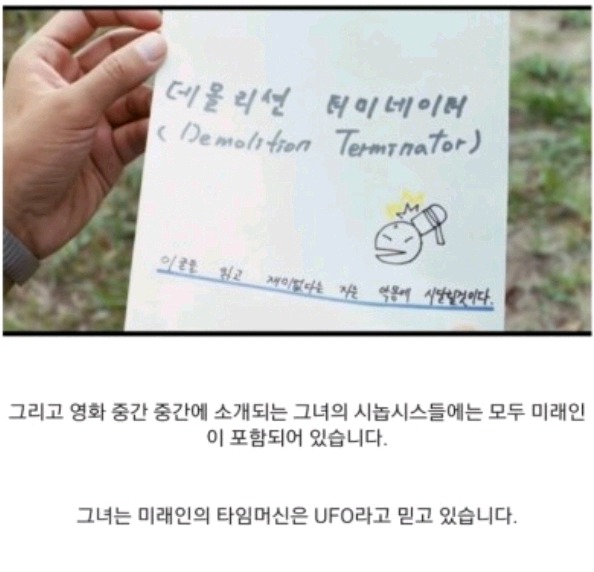 데몰리션 터미네이터
(Demolition Terminator)
이글을 읽고 재미없다는 자는 악몽에 시달릴것이다.
그리고 영화 중간 중간에 소개되는 그녀의 시놉시스들에는 모두 미래인
이 포함되어 있습니다.
그녀는 미래인의 타임머신은 UFO라고 믿고 있습니다.